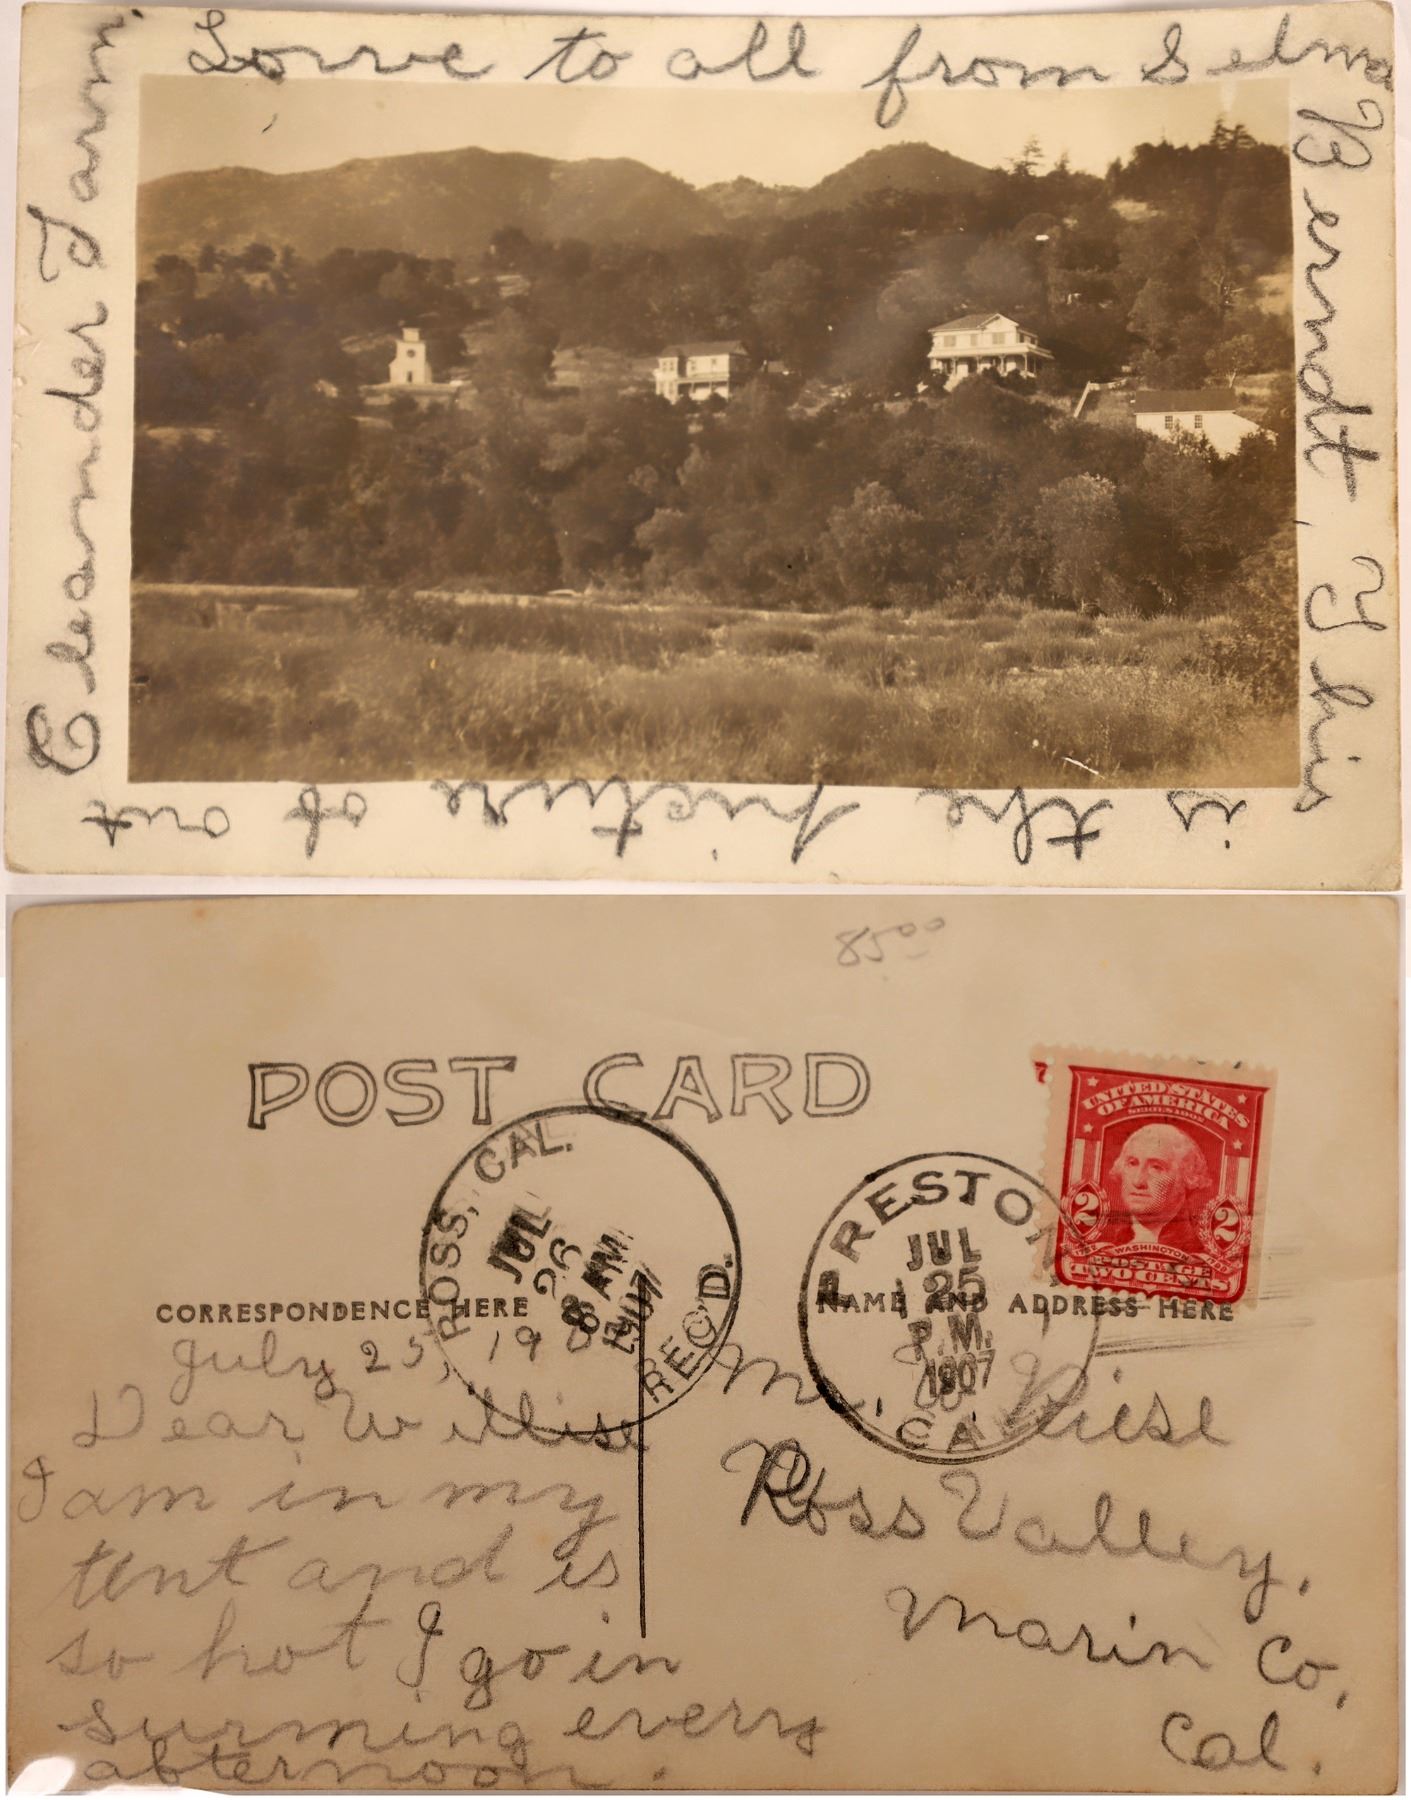 Lovve to all from Selma
Berndt, This
is the picture of out
Cleamder Farm
8500
POST CARD
ROSS, CAL.
JUL
26
8 AM
1907
REC'D.
PRESTON
JUL
25
P.M.
1907
CAL
UNITED STATES
OF AMERICA
SERIES 1902
2 2
WASHINGTON
POSTAGE
TWO CENTS
CORRESPONDENCE HERE
NAME AND ADDRESS HERE
July 25, 190
Dear Willise
I am in my
tent and is
so hot I go in
surming everry
afternoon.
Mr.
Ross Valley,
Marin Co,
Cal.